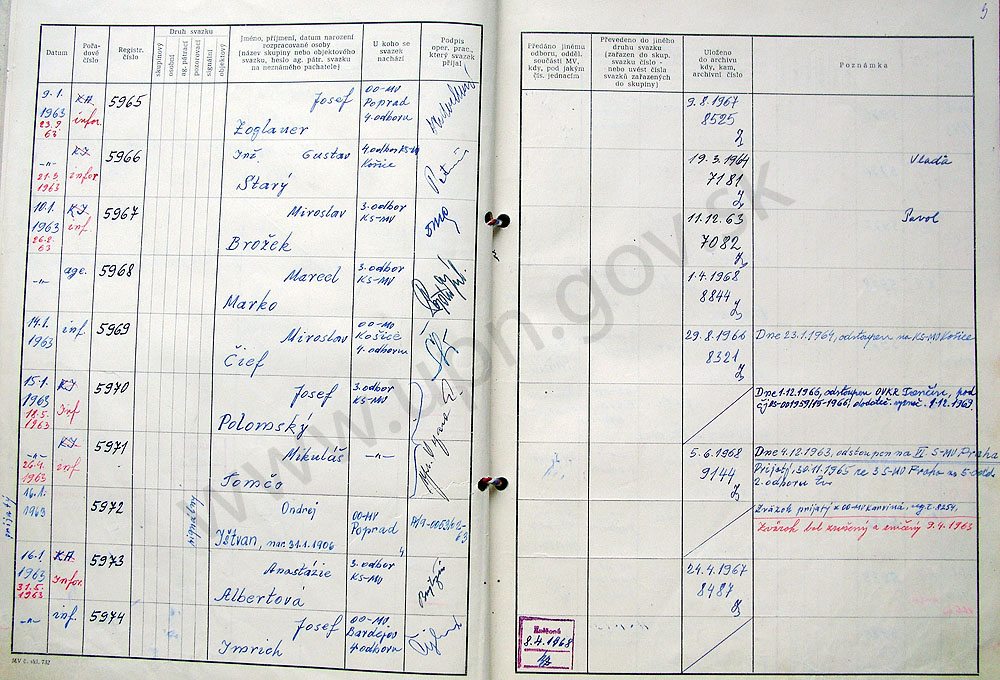 5
Datum
Pořadové číslo
Registr. číslo
Druh svazku
skupinový
osobní
ag. pátrací
pozorovací
signální
objektový
Jméno, příjmení, datum narození
rozpracované osoby
(název skupiny nebo objektového
svazku, heslo ag. pátr. svazku
na neznámého pachatele)
U koho se
svazek
nachází
Podpis
oper. prac.,
který svazek
přijal
Předáno jinému
odboru, odděl.
součásti MV,
kdy, pod jakým
čís. jednacím
Převedeno do jiného
druhu svazku
(zařazen do skup.
svazku číslo -
nebo uvést čísla
svazků zařazených
do skupiny)
Uloženo
do archivu
kdy, kam,
archivní číslo
Poznámka
9.1. 1963 23.9. 63
KA. infor.
5965
Josef
Zoglauer
OO-MV
Poprad
4. odboru
9.8.1967
8525
-"- 21.3. 1963
KI infor
5966
Inž. Gustav
Starý
4. odbor KS-MV
Košice
19.3.1964
7181
Vlada
10.1. 1963 26.2. 63
KI inf
5967
Miroslav
Brožek
3. odbor
KS-MV
11.12.63
7082
Pavol
-"-
age.
5968
Marcel
Marko
3. odbor
KS-MV
1.4.1968
8844
14.1. 1963
inf.
5969
Miroslav
Čief
OO-MV
Košice
4. odboru
29.8.1966
8321
Dne 23.1.1964, odstoupen na KS-MV Košice
15.1. 1963 18.5. 1963
KI Inf
5970
Josef
Polomský
3. odbor
KS-MV
Dne 1.12.1966, odstoupen OVKR Trenčín, pod
-"- 26.4. 1963
KI inf
5971
Mikuláš
Tomčo
-"-
5.6.1968
9144
Dne 4.12.1963, odstoupen na II. S-MV Praha
Prijatý, 30.11.1965 ze 3 S-MV Praha na 5. odd.
2. odboru
prijatý
16.1. 1963
5972
signálny
Ondrej
Ištvan, nar. 31.1.1906
OO-MV
Poprad
Zväzok prijatý z OO-MV Karviná. reg. č. 8254.
Zväzok bol zrušený a zničený 9.4.1963
16.1 1963 31.5. 1963
KA. Infor.
5973
Anastázie
Albertová
3. odbor
KS-MV
24.4.1967
8487
-"-
inf.
5974
Josef
Imrich
OO-MV.
Bardejov
4. odboru
8.4.1968
MV č. skl. 732
www.upn.gov.sk